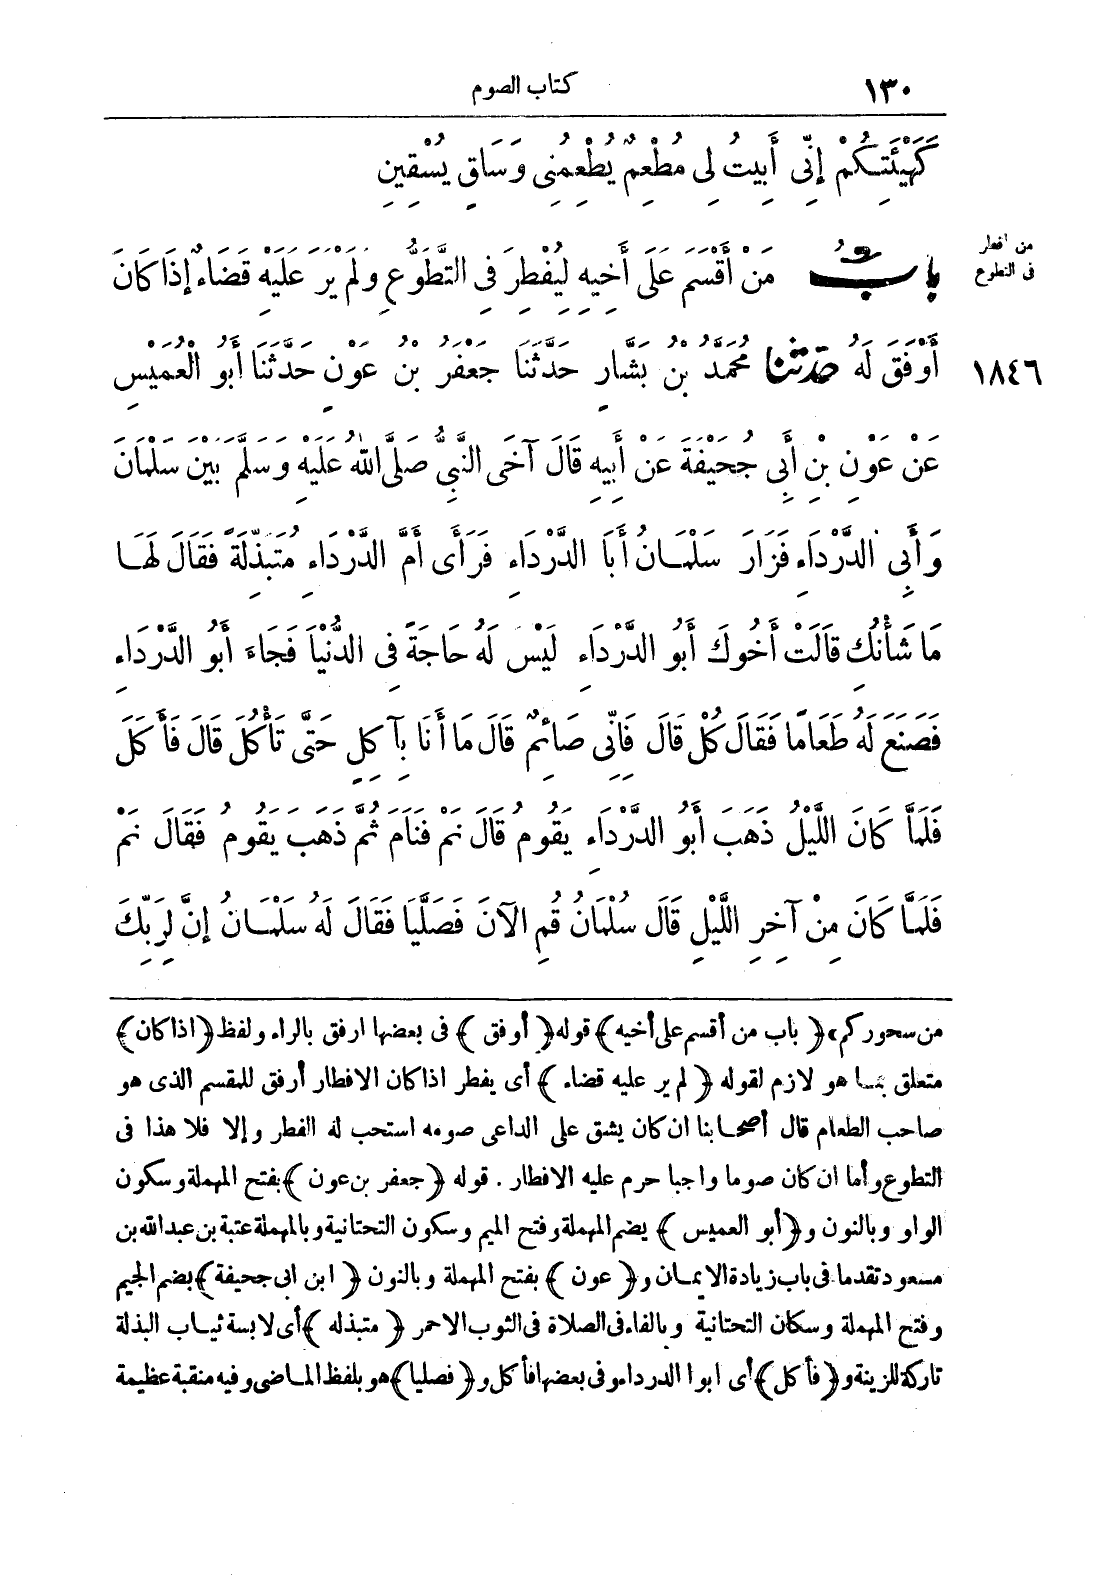 ١٣٠ كتاب الصوم
كَهَيْئَتِكُمْ إِنِّى أَبِيتُ لِى مُطْعِمٌ يُطْعِمُنِى وَسَاقٍ يُسْقِينِ
من افطر
فى التطوع
بابٌ مَنْ أَقْسَمَ عَلَى أَخِيهِ لِيُفْطِرَ فِى التَّطَوُّعِ وَلَمْ يَرَ عَلَيْهِ قَضَاءً إِذَا كَانَ
١٨٤٦ أَوْفَقَ لَهُ حَدَّثَنَا مُحَمَّدُ بْنُ بَشَّارٍ حَدَّثَنَا جَعْفَرُ بْنُ عَوْنٍ حَدَّثَنَا أَبُو الْعُمَيْسِ
عَنْ عَوْنِ بْنِ أَبِى جُحَيْفَةَ عَنْ أَبِيهِ قَالَ آخَى النَّبِىُّ صَلَّى اللهُ عَلَيْهِ وَسَلَّمَ بَيْنَ سَلْمَانَ
وَأَبِى الدَّرْدَاءِ فَزَارَ سَلْمَانُ أَبَا الدَّرْدَاءِ فَرَأَى أُمَّ الدَّرْدَاءِ مُتَبَذِّلَةً فَقَالَ لَهَا
مَا شَأْنُكِ قَالَتْ أَخُوكَ أَبُو الدَّرْدَاءِ لَيْسَ لَهُ حَاجَةٌ فِى الدُّنْيَا فَجَاءَ أَبُو الدَّرْدَاءِ
فَصَنَعَ لَهُ طَعَامًا فَقَالَ كُلْ قَالَ فَانِّى صَائِمٌ قَالَ مَا أَنَا بِآكِلٍ حَتَّى تَأْكُلَ قَالَ فَأَكَلَ
فَلَمَّا كَانَ اللَّيْلُ ذَهَبَ أَبُو الدَّرْدَاءِ يَقُومُ قَالَ نَمْ فَنَامَ ثُمَّ ذَهَبَ يَقُومُ فَقَالَ نَمْ
فَلَمَّا كَانَ مِنْ آخِرِ اللَّيْلِ قَالَ سُلْمَانُ قُمِ الآنَ فَصَلَّيَا فَقَالَ لَهُ سَلْمَانُ إِنَّ لِرَبِّكَ
من سحوركم» ﴿باب من أقسم على أخيه﴾ قوله ﴿أوفق﴾ فى بعضها ارفق بالراء ولفظ ﴿اذا كان﴾
متعلق بما هو لازم لقوله ﴿لم ير عليه قضاء﴾ أى يفطر اذا كان الافطار أرفق للمقسم الذى هو
صاحب الطعام قال أصحابنا ان كان يشق على الداعى صومه استحب له الفطر وإلا فلا هذا فى
التطوع وأما ان كان صوما واجبا حرم عليه الافطار . قوله ﴿جعفر بن عون﴾ بفتح المهملة وسكون
الواو وبالنون و﴿أبو العميس﴾ بضم المهملة وفتح الميم وسكون التحتانية وبالمهملة عتبة بن عبدالله بن
مسعود تقدما فى باب زيادة الايمان و﴿عون﴾ بفتح المهملة وبالنون ﴿ابن ابى جحيفة﴾ بضم الجيم
وفتح المهملة وسكان التحتانية وبالفاء فى الصلاة فى الثوب الاحمر ﴿متبذله﴾ أى لابسة ثياب البذلة
تاركة للزينة و﴿فأكل﴾ أى ابوا الدرداء وفى بعضها فأكل و﴿فصليا﴾ هو بلفظ الماضى وفيه منقبة عظيمة